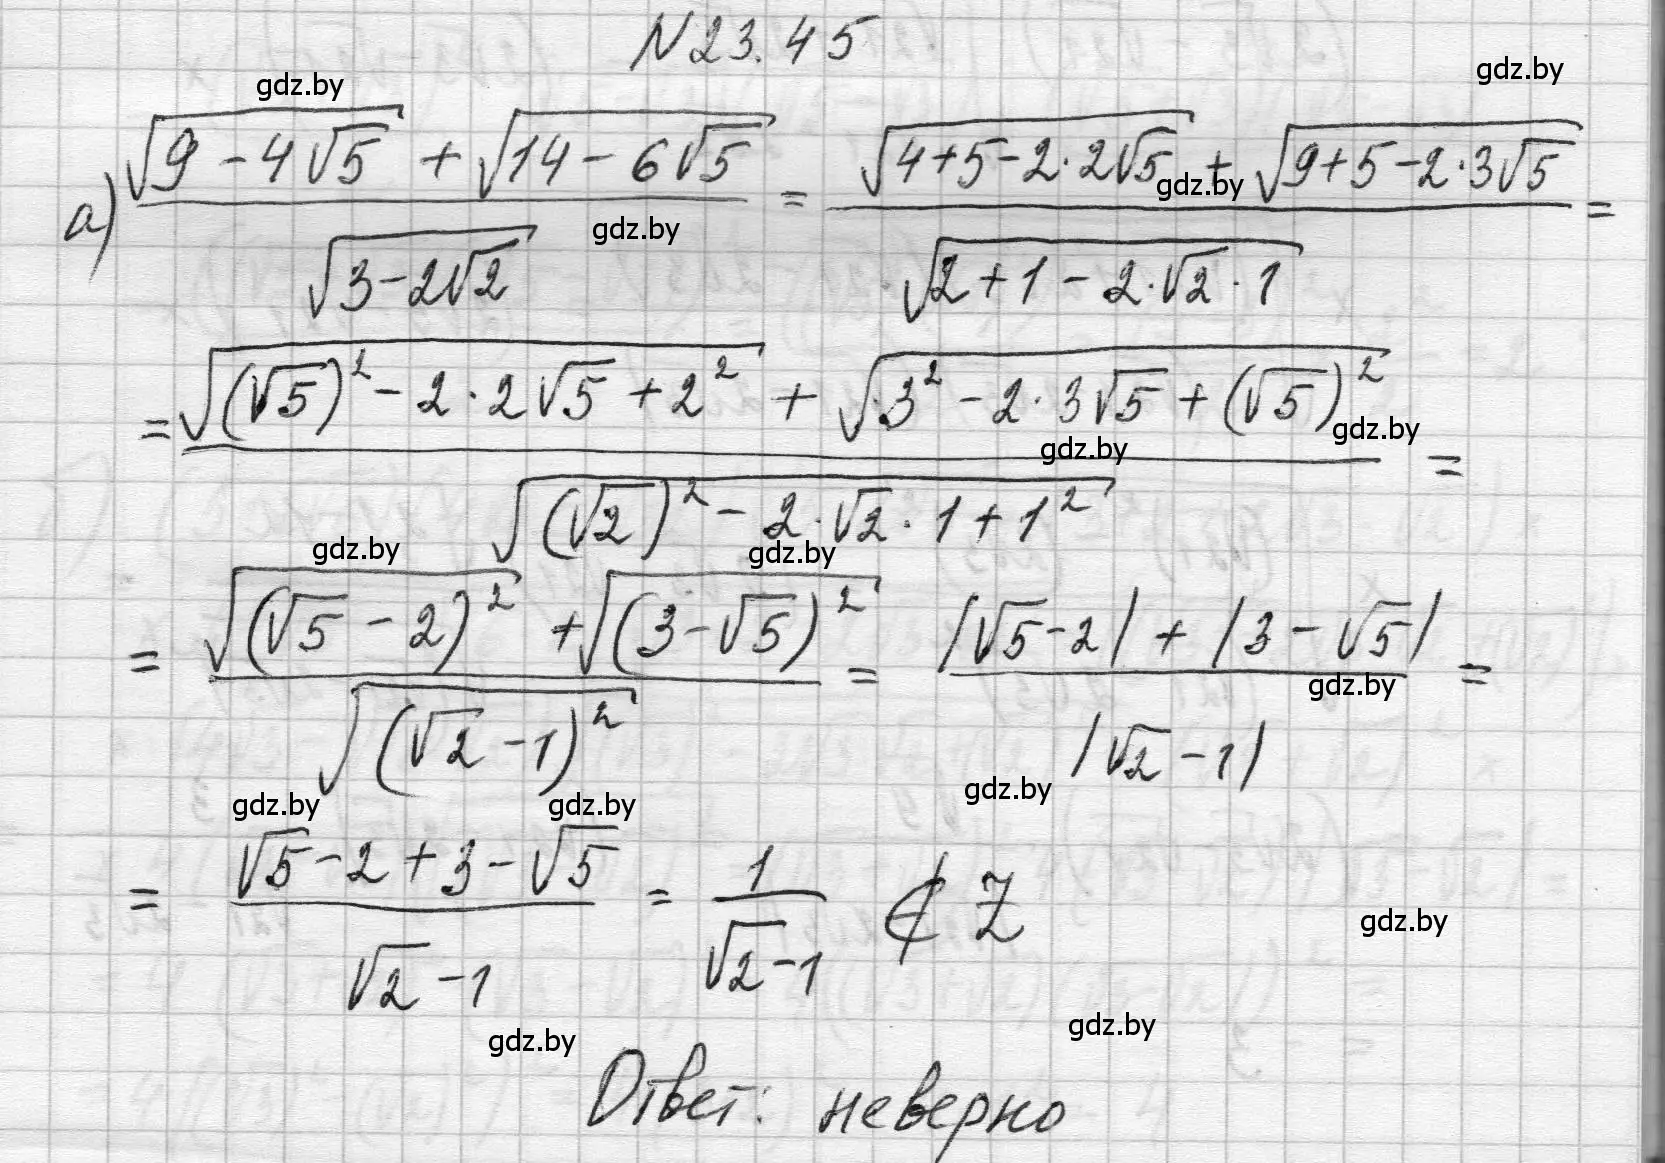 N 23.45
gdz.by gdz.by
а) (√(9 − 4√5) + √(14 − 6√5)) / √(3 − 2√2) = (√(4+5−2·2√5) + √(9+5−2·3√5)) / √(2+1−2·√2·1) =
gdz.by gdz.by
= (√((√5)² − 2·2√5 + 2²) + √(3² − 2·3√5 + (√5)²)) / √((√2)² − 2·√2·1 + 1²) =
gdz.by gdz.by
gdz.by gdz.by
= (√((√5 − 2)²) + √((3 − √5)²)) / √((√2 − 1)²) = (|√5 − 2| + |3 − √5|) / |√2 − 1| =
gdz.by
gdz.by gdz.by gdz.by
= (√5 − 2 + 3 − √5) / (√2 − 1) = 1 / (√2 − 1) ∉ Z
gdz.by
gdz.by gdz.by
Ответ: неверно